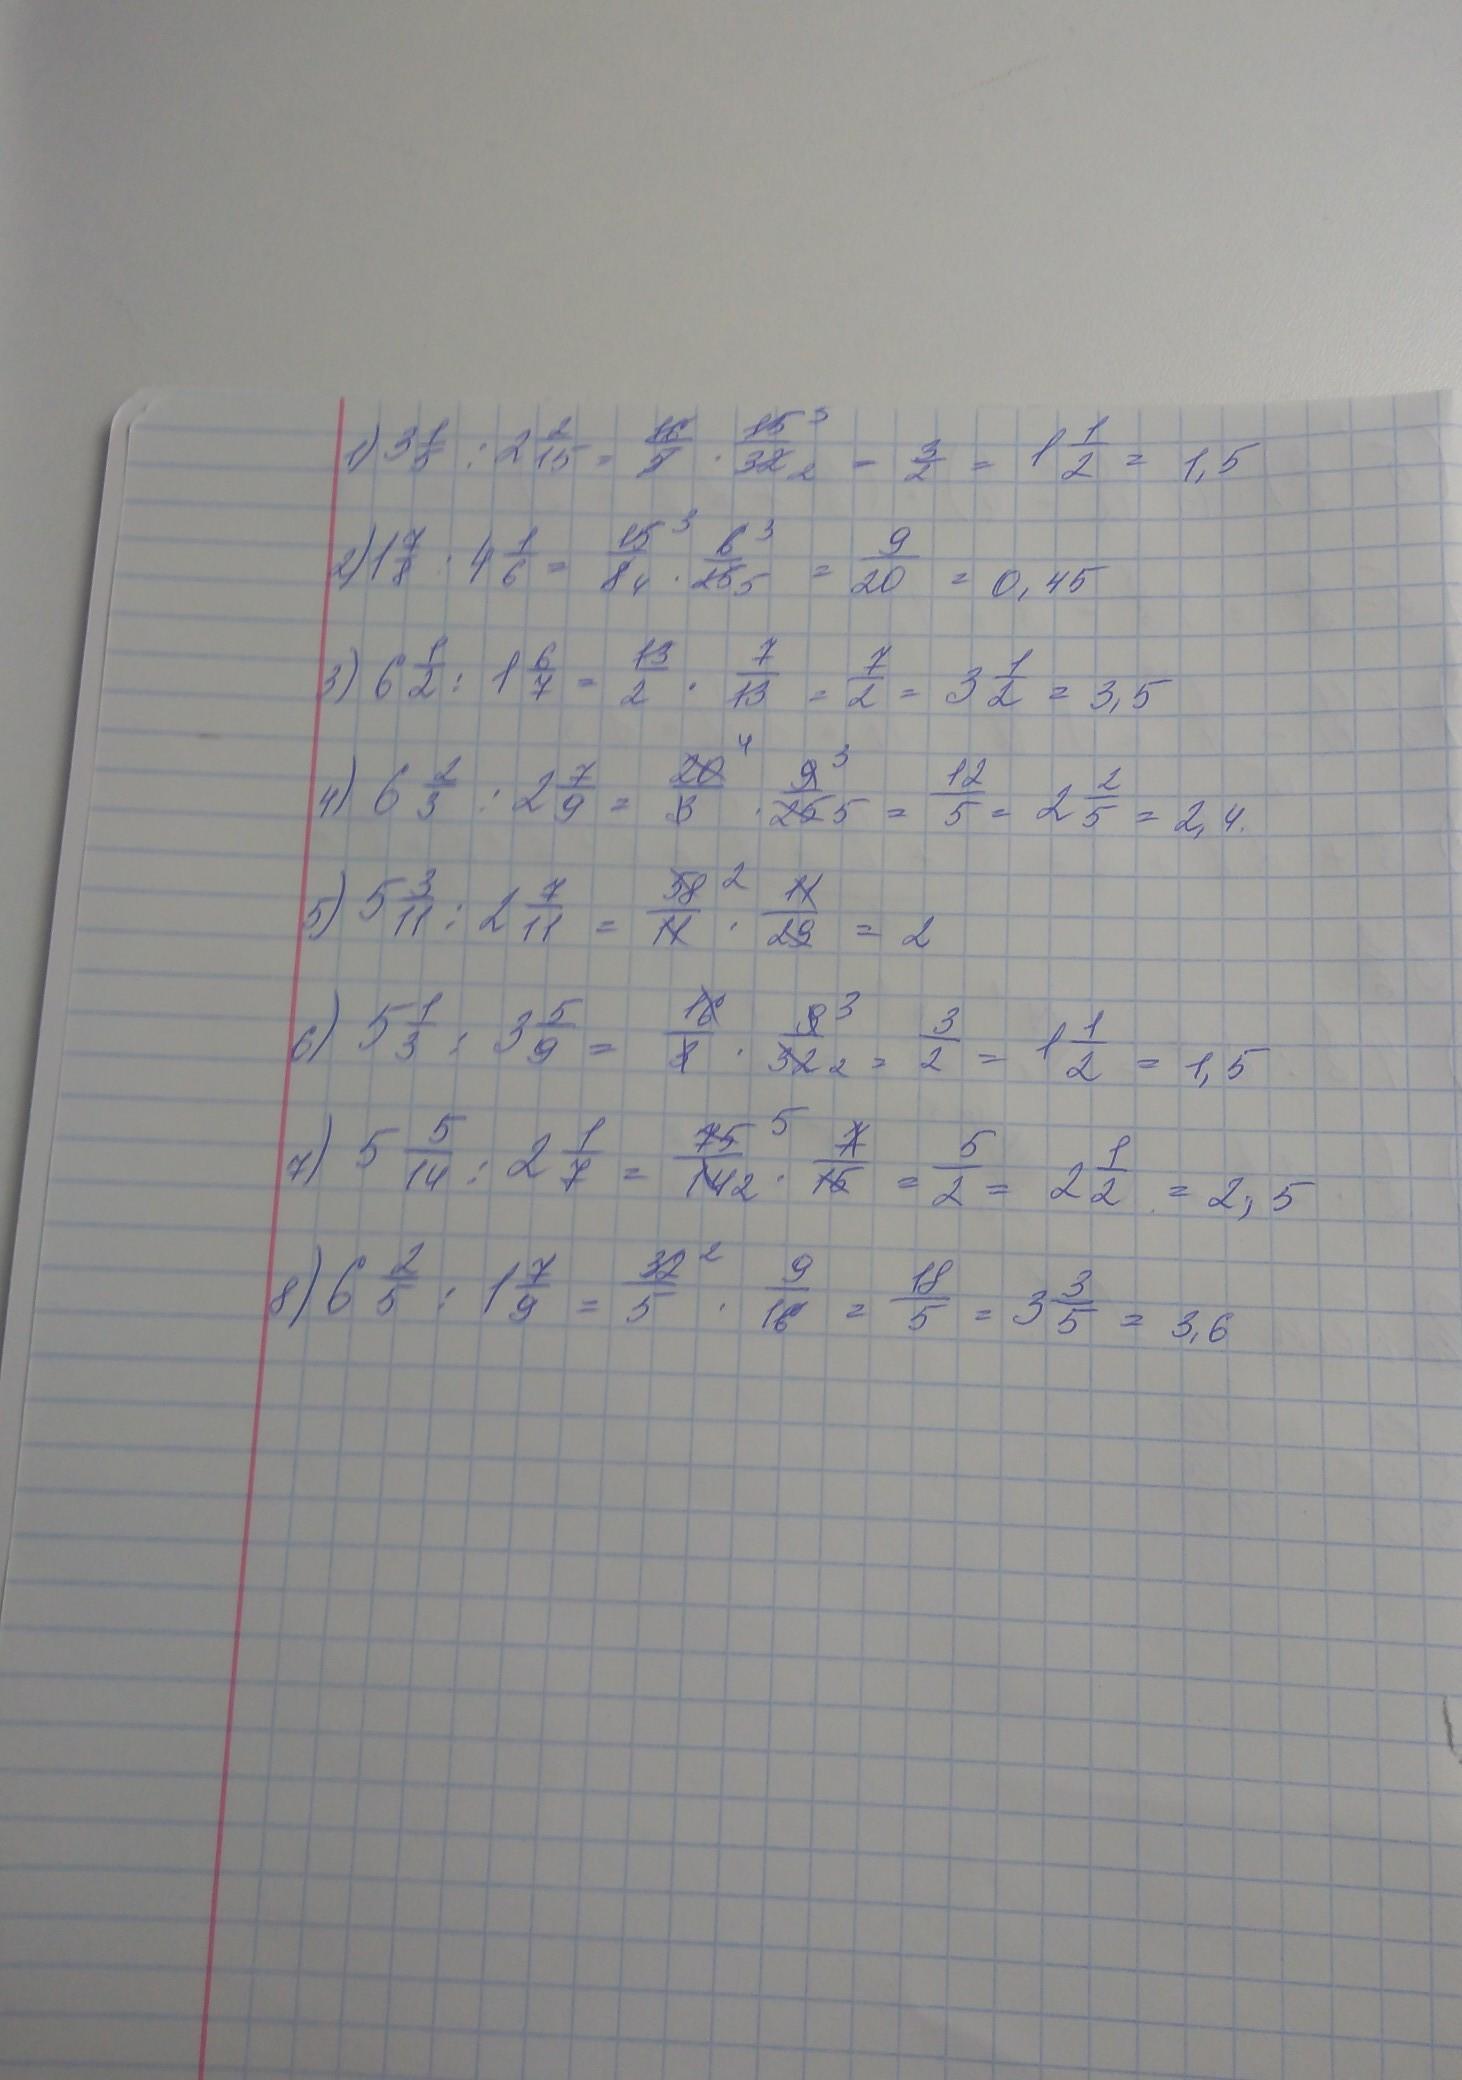 1) 3 1/5 : 2 2/15 = 16/5 · 15 3/32 2 = 3/2 = 1 1/2 = 1,5
2) 1 7/8 : 4 1/6 = 15 3/8 4 · 6 3/25 5 = 9/20 = 0,45
3) 6 1/2 : 1 6/7 = 13/2 · 7/13 = 7/2 = 3 1/2 = 3,5
4) 6 2/3 : 2 7/9 = 20 4/3 · 9 3/25 5 = 12/5 = 2 2/5 = 2,4.
5) 5 3/11 : 2 7/11 = 58 2/11 · 11/29 = 2
6) 5 1/3 : 3 5/9 = 16/3 · 9 3/32 2 = 3/2 = 1 1/2 = 1,5
7) 5 5/14 : 2 1/7 = 75 5/14 2 · 7/15 = 5/2 = 2 1/2 = 2,5
8) 6 2/5 : 1 7/9 = 32 2/5 · 9/16 = 18/5 = 3 3/5 = 3,6